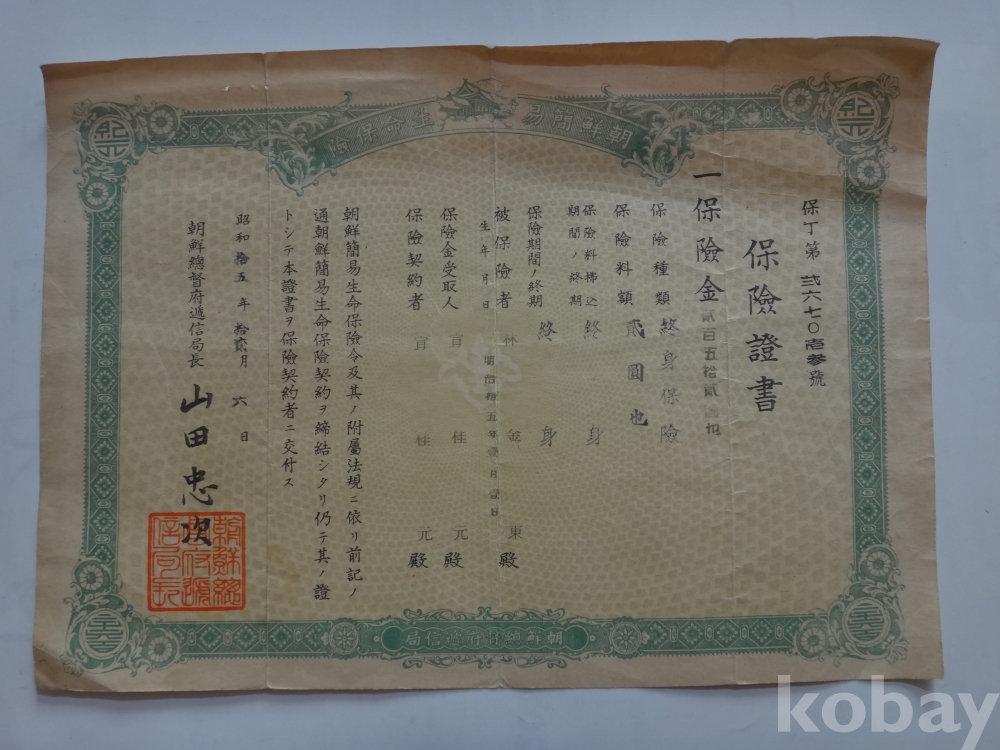 朝鮮簡易生命保險
保丁第 弐六七〇壱参號
保險證書
一保險金貳百五拾貳圓也
保險種類 終身保險
保險料額 貳圓也
保險料拂込
期間ノ終期 終身
保險期間ノ終期 終身
被保險者 林金東殿
生年月日 明治拾五年 月 日
保險金受取人 桂元殿
保險契約者 桂元殿
朝鮮簡易生命保險令及其ノ附屬法規ニ依リ前記ノ
通朝鮮簡易生命保險契約ヲ締結シタリ仍テ其ノ證
トシテ本證書ヲ保險契約者ニ交付ス
昭和拾五年拾貳月六日
朝鮮總督府遞信局長 山田忠次
朝鮮總督府遞信局長
朝鮮總督府遞信局
kobay